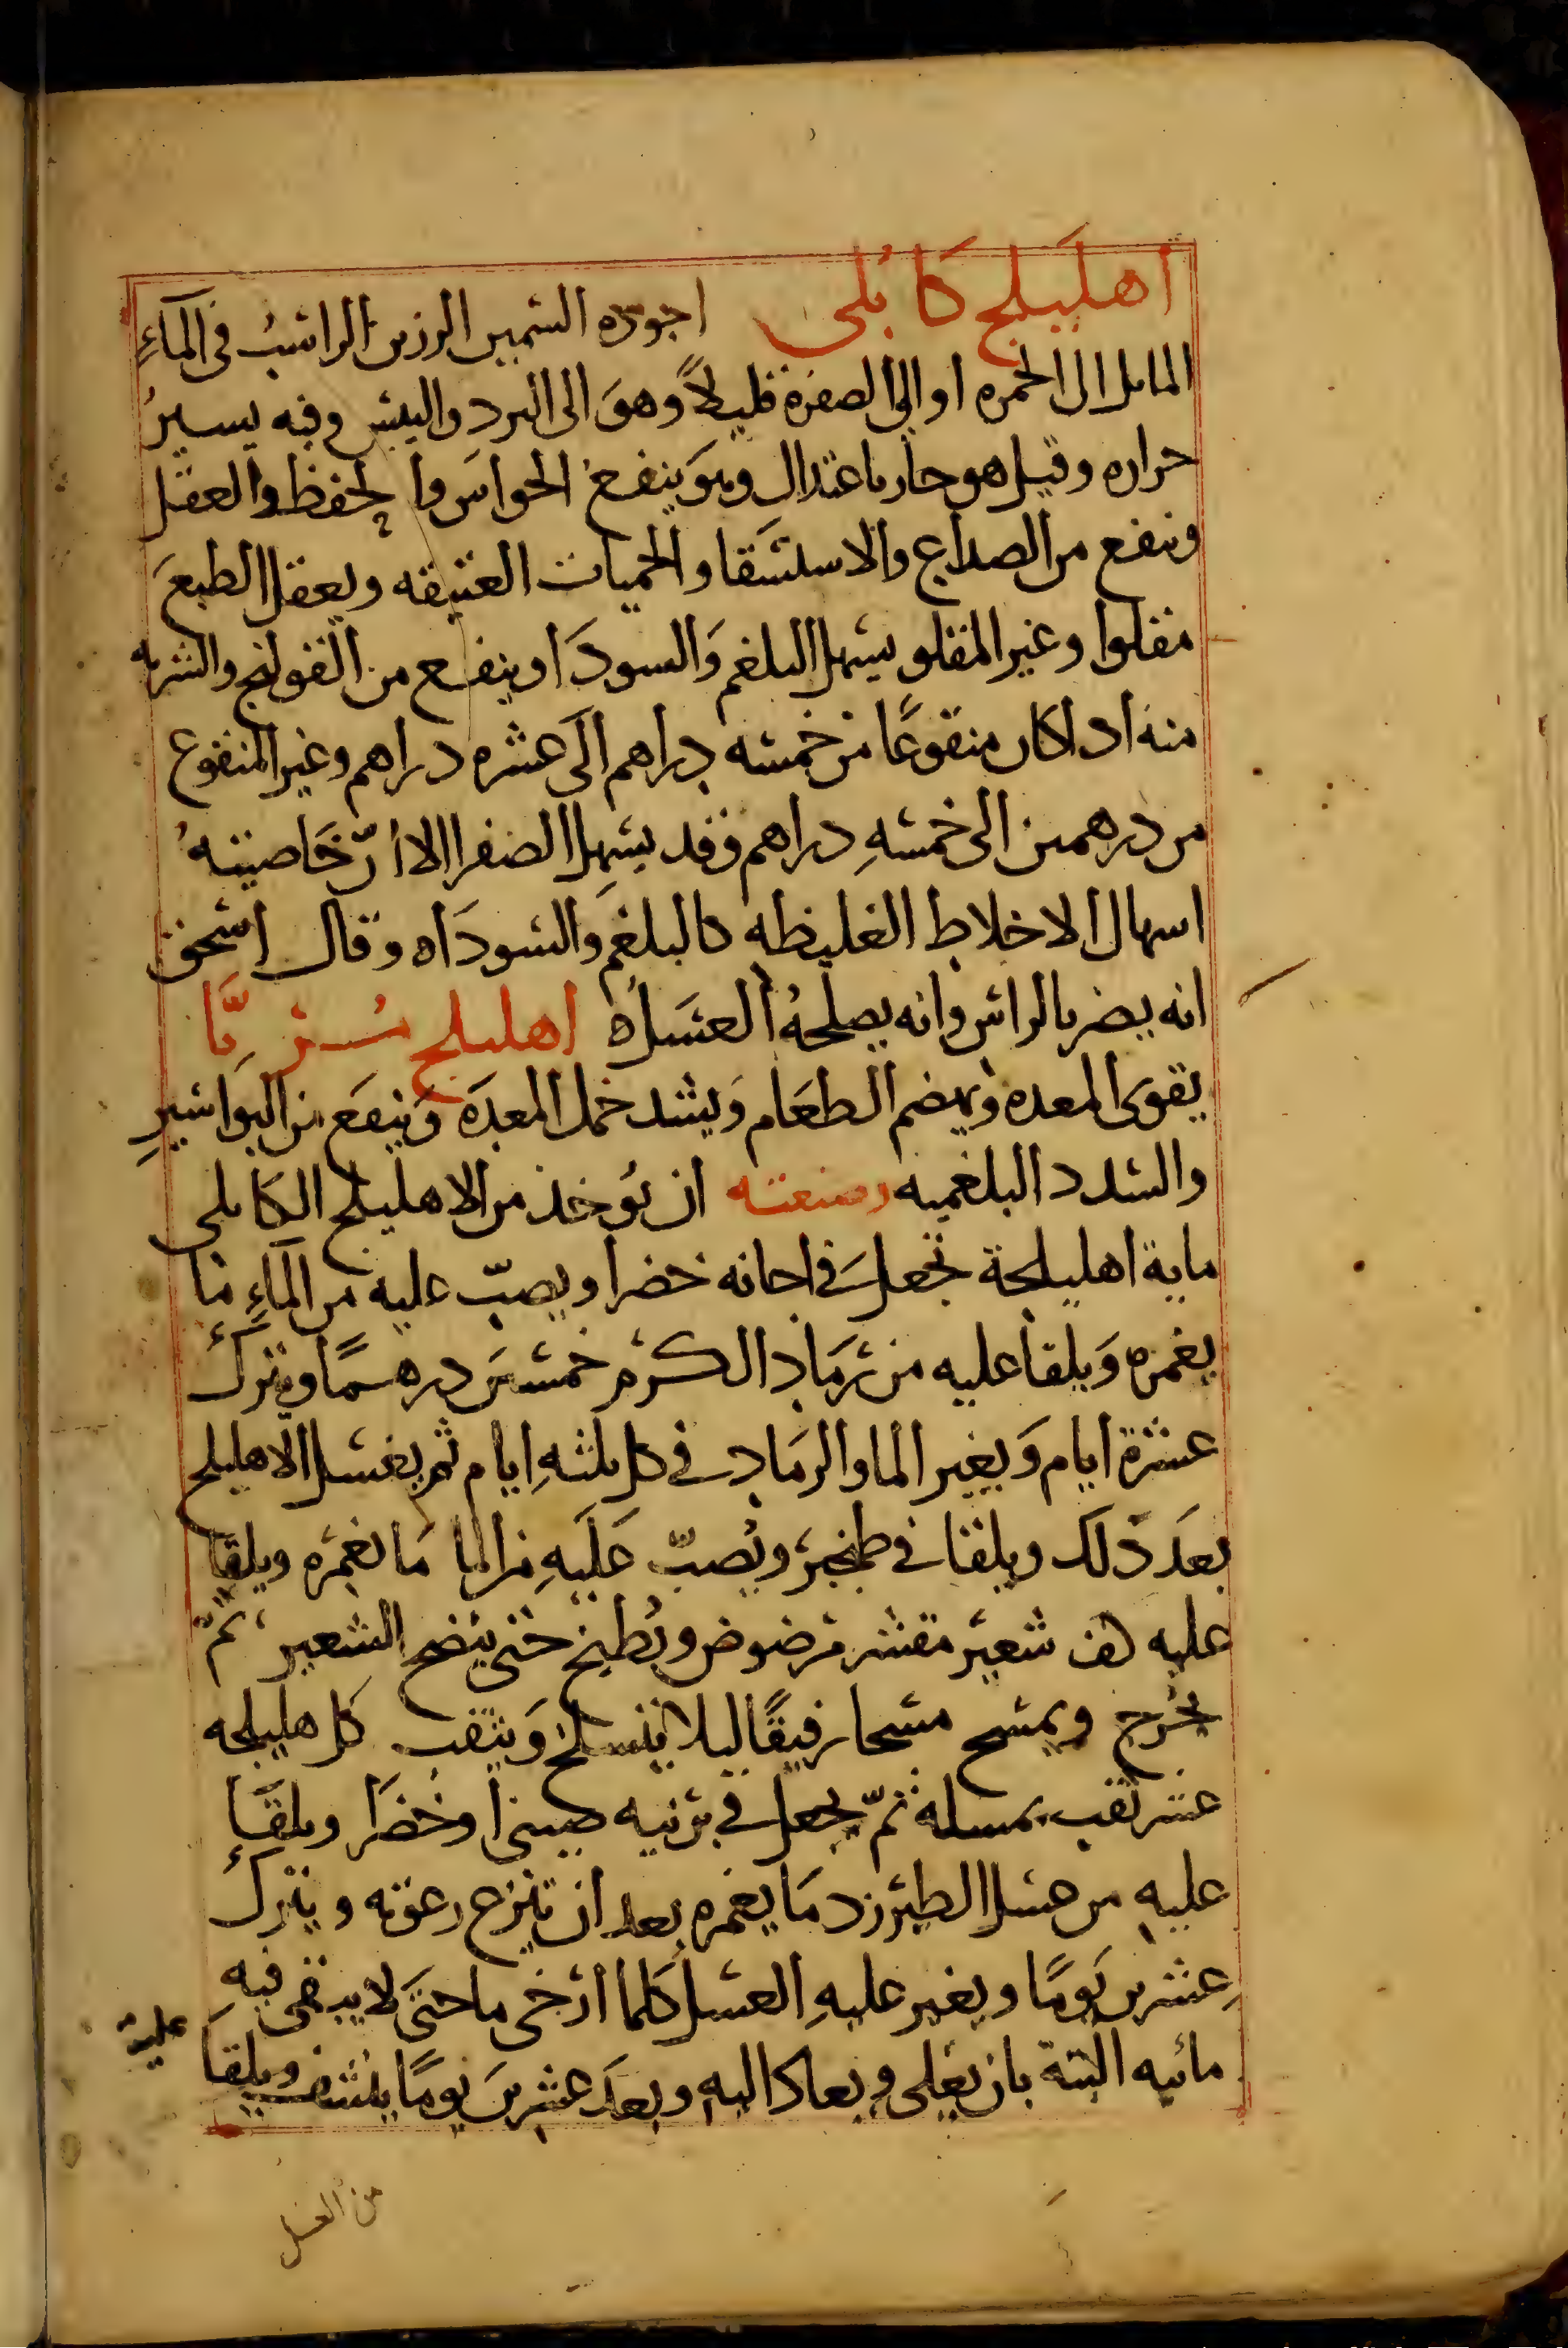 اهليلج كابلى اجوده السمين الرزين الراسب فى المآءِ
المايل الى الحمره او الى الصفرة قليلاً وهوَ الى البرد واليبس وفيه يسيرُ
حراره وقيل هو حار باعتدال وهوَ ينفع الحواسَ والحفظ والعقل
وينفع من الصداع والاستسقا والحميات العتيقه ويعقل الطبعَ
مقلوا وغير المقلو يسهل البلغم وَالسودَا وينفع من القولنج والشربه
منه ادا كان منقوعًا من خمسه دراهم الَى عشره دراهم وغير المنقوع
من درهمين الى خمسهِ دراهم وقد يسهل الصفرا الا انّ خَاصيتهُ
اسهال الاخلاط الغليظه كالبلغم وَالسودَاه وقال اسحق
انه يضر بالراس وانه يصلحهُ العسَل ه اهليلج مُربَّا
يقوى المعده ويهضم الطعَام وَيشد خمل المعدَة وَينفَع من البوَاسيرِ
والسدد البلغميه وصنعته ان يُوخذ من الاهليلج الكابلى
ماية اهليلجة تجعل فى اجانه خضرا ويصبّ عليه من المآءِ مَا
يغمره وَيلقا عليه من رمَاد الكرم خمسين درهمًا ويترك
عشرة ايام وَيغير الما والرمَاد فى كل ثلثهِ ايام ثم يغسل الاهليلج
بعَد ذلَك ويلقا فى طنجير ويُصبّ عَلَيهِ من الما مَا يغمره ويلقا
عليه كف شعير مقشر مرضوض ويُطبخ حتى ينضج الشعير ثمّ
يخرج ويمسح مسحا رفيقًا ليلا ينسلخ وَيثقب كل هليلجه
عشر ثقب بمسله ثمّ يجعل فى برنيه صينى او خضَرا ويلقَا
عليهِ من عسل الطبرزد مَا يغمره بعد ان تنزع رغوته ويترك
عِشرين يَومًا ويغير عليهِ العسل كلما ارخى ما حتَى لا يبقى فيهِ
مائيه البتة بان يغلى ويعاد اليهِ وبعدَ عشرينَ يومًا ينشف ويلقَا عليه
من العسل